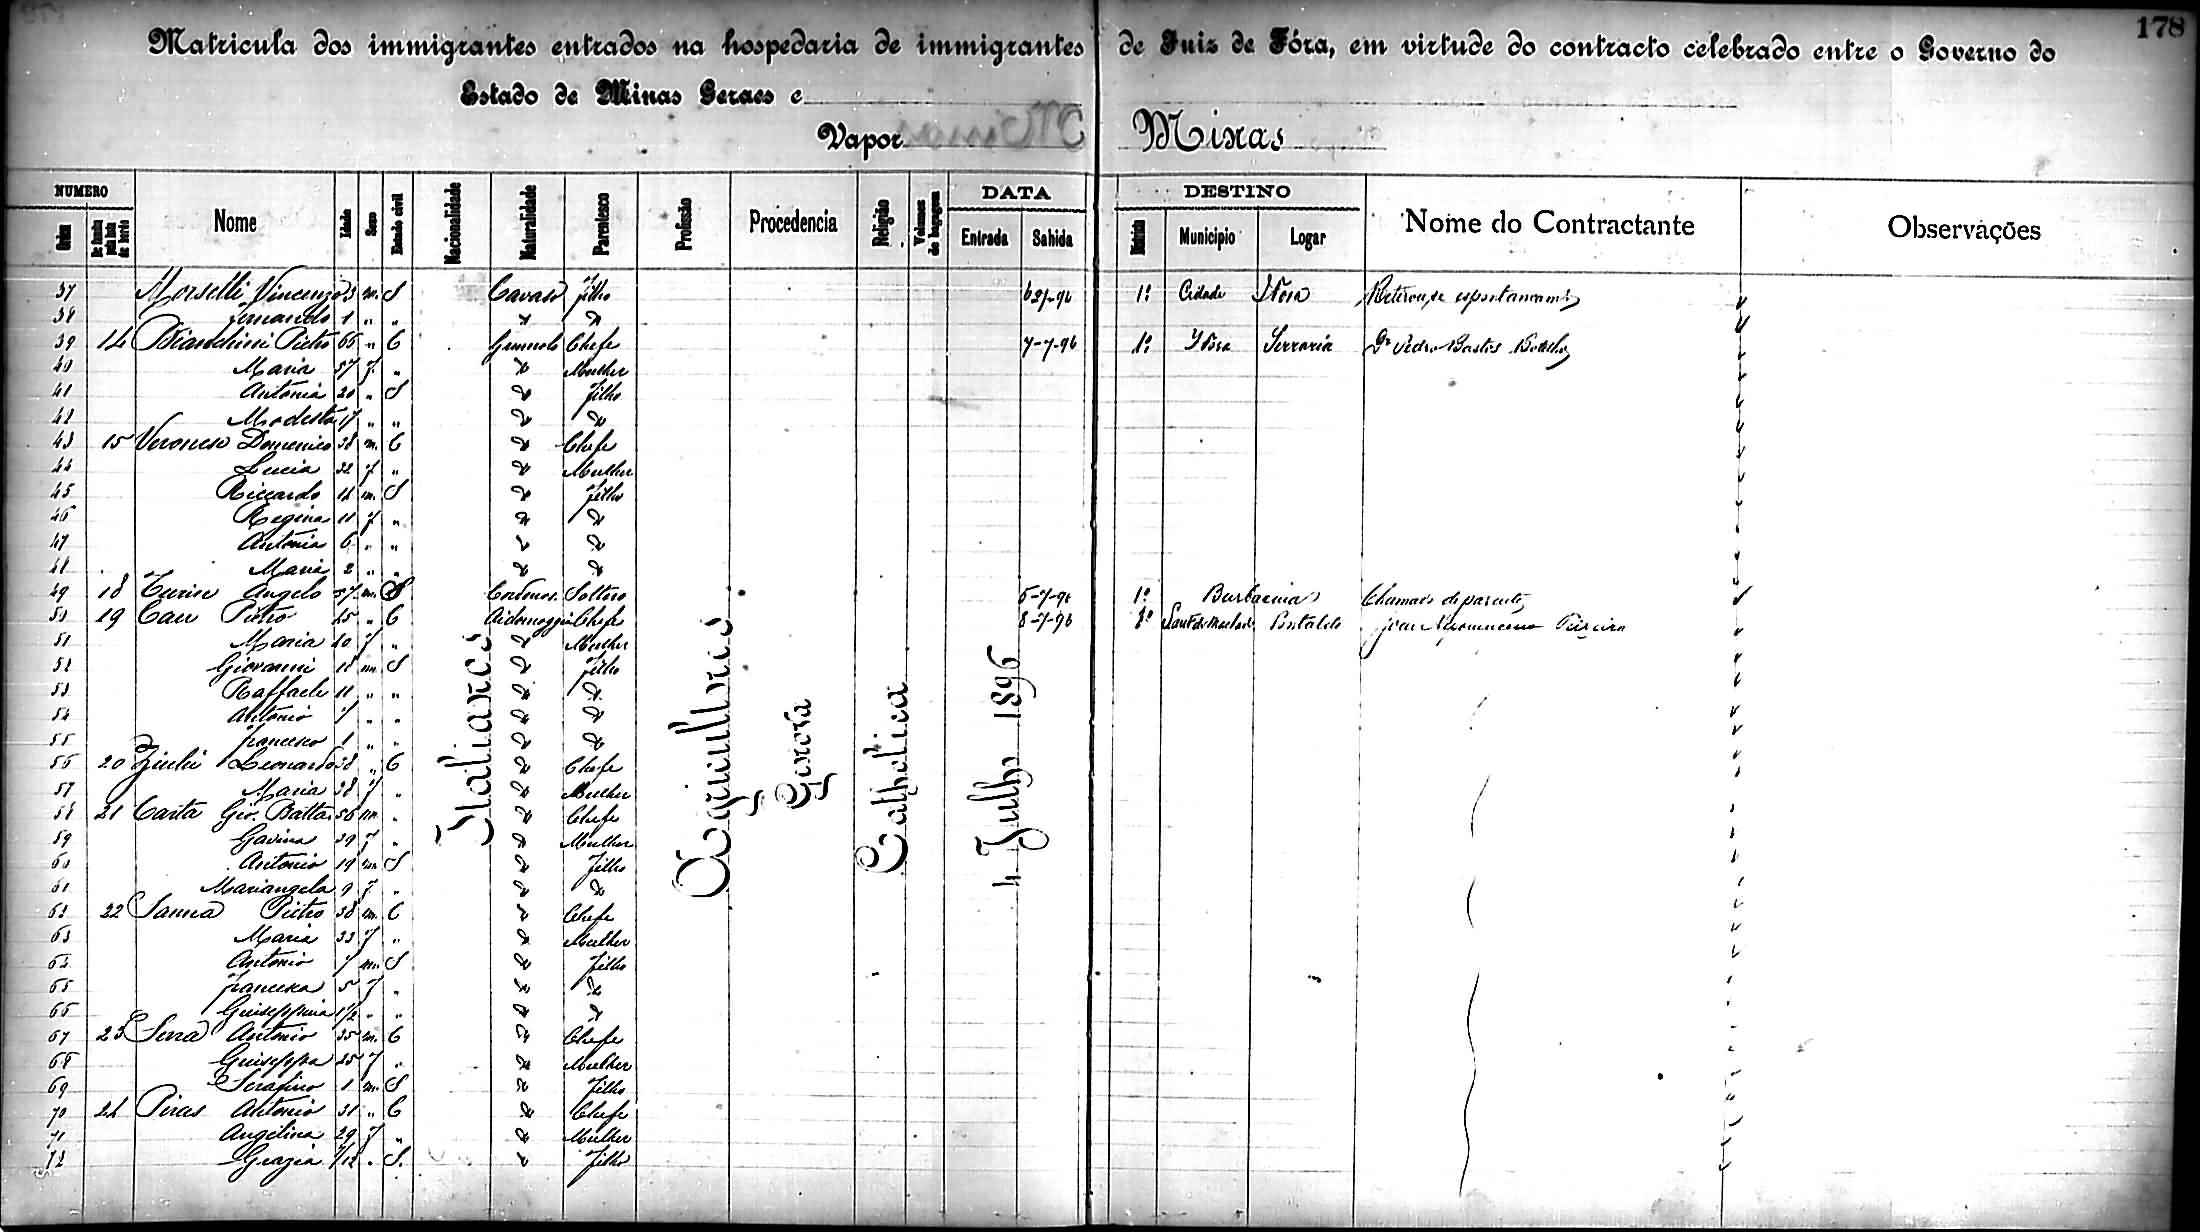 178
Matricula dos immigrantes entrados na hospedaria de immigrantes de Juiz de Fóra, em virtude do contracto celebrado entre o Governo do
Estado de Minas Geraes e
Vapor Minas
NUMERO Nome Idade Sexo Estado civil Nacionalidade Naturalidade Parentesco Profissão Procedencia Religião Volumes de bagagem DATA DESTINO Nome do Contractante Observações
Ordem Entrada Sahida Districto Municipio Logar
Italianos Agricultores Genova Catholica 4 Julho 1896
37 Morselli Vincenzo 3 m. S Cavaso filho 6-7-96 1º Cidade Retirou-se espontaneamte
38 Fernando 1 " " " "
39 14 Bianchini Pietro 66 " C Chefe 7-7-96 1º Serraria Dr Pedro Bastos Botelho
40 Maria 57 f. " " Mulher
41 Antonia 20 " S " filho
42 Modesta 17 " " " "
43 15 Veronese Domenico 38 m. C " Chefe
44 Lucia 32 f " " Mulher
45 Riccardo 14 m. S " filho
46 Regina 11 f " " "
47 Antonia 6 " " " "
48 Maria 2 " " " "
49 18 Angelo 57 m. S Solteiro 5-7-96 1º Barbacena Chamado de parente
50 19 Cau Pietro 45 " C Chefe 8-7-96 Pontalete João Nepomuceno
51 Maria 40 f " " Mulher
52 Giovanni 18 m S " filho
53 Raffaele 11 " " " "
54 Antonio 7 " " " "
55 Francesco 1 " " " "
56 20 Leonardo 38 " C " Chefe
57 Maria 28 f " " Mulher
58 21 Carta Gio. Batta. 56 m " " Chefe
59 Gavina 39 f " " Mulher
60 Antonio 19 m S " filho
61 Mariangela 9 f " " "
62 22 Sanna Pietro 38 m. C " Chefe
63 Maria 33 f " " Mulher
64 Antonio 7 m. S " filho
65 Francesca 5 f " " "
66 Giuseppina 1/2 " " " "
67 23 Serra Antonio 35 m. C " Chefe
68 Giuseppa 25 f " " Mulher
69 Serafino 1 m. S " filho
70 24 Piras Antonio 31 " C " Chefe
71 Angelina 29 f " " Mulher
72 Grazia /12 " S. " filho